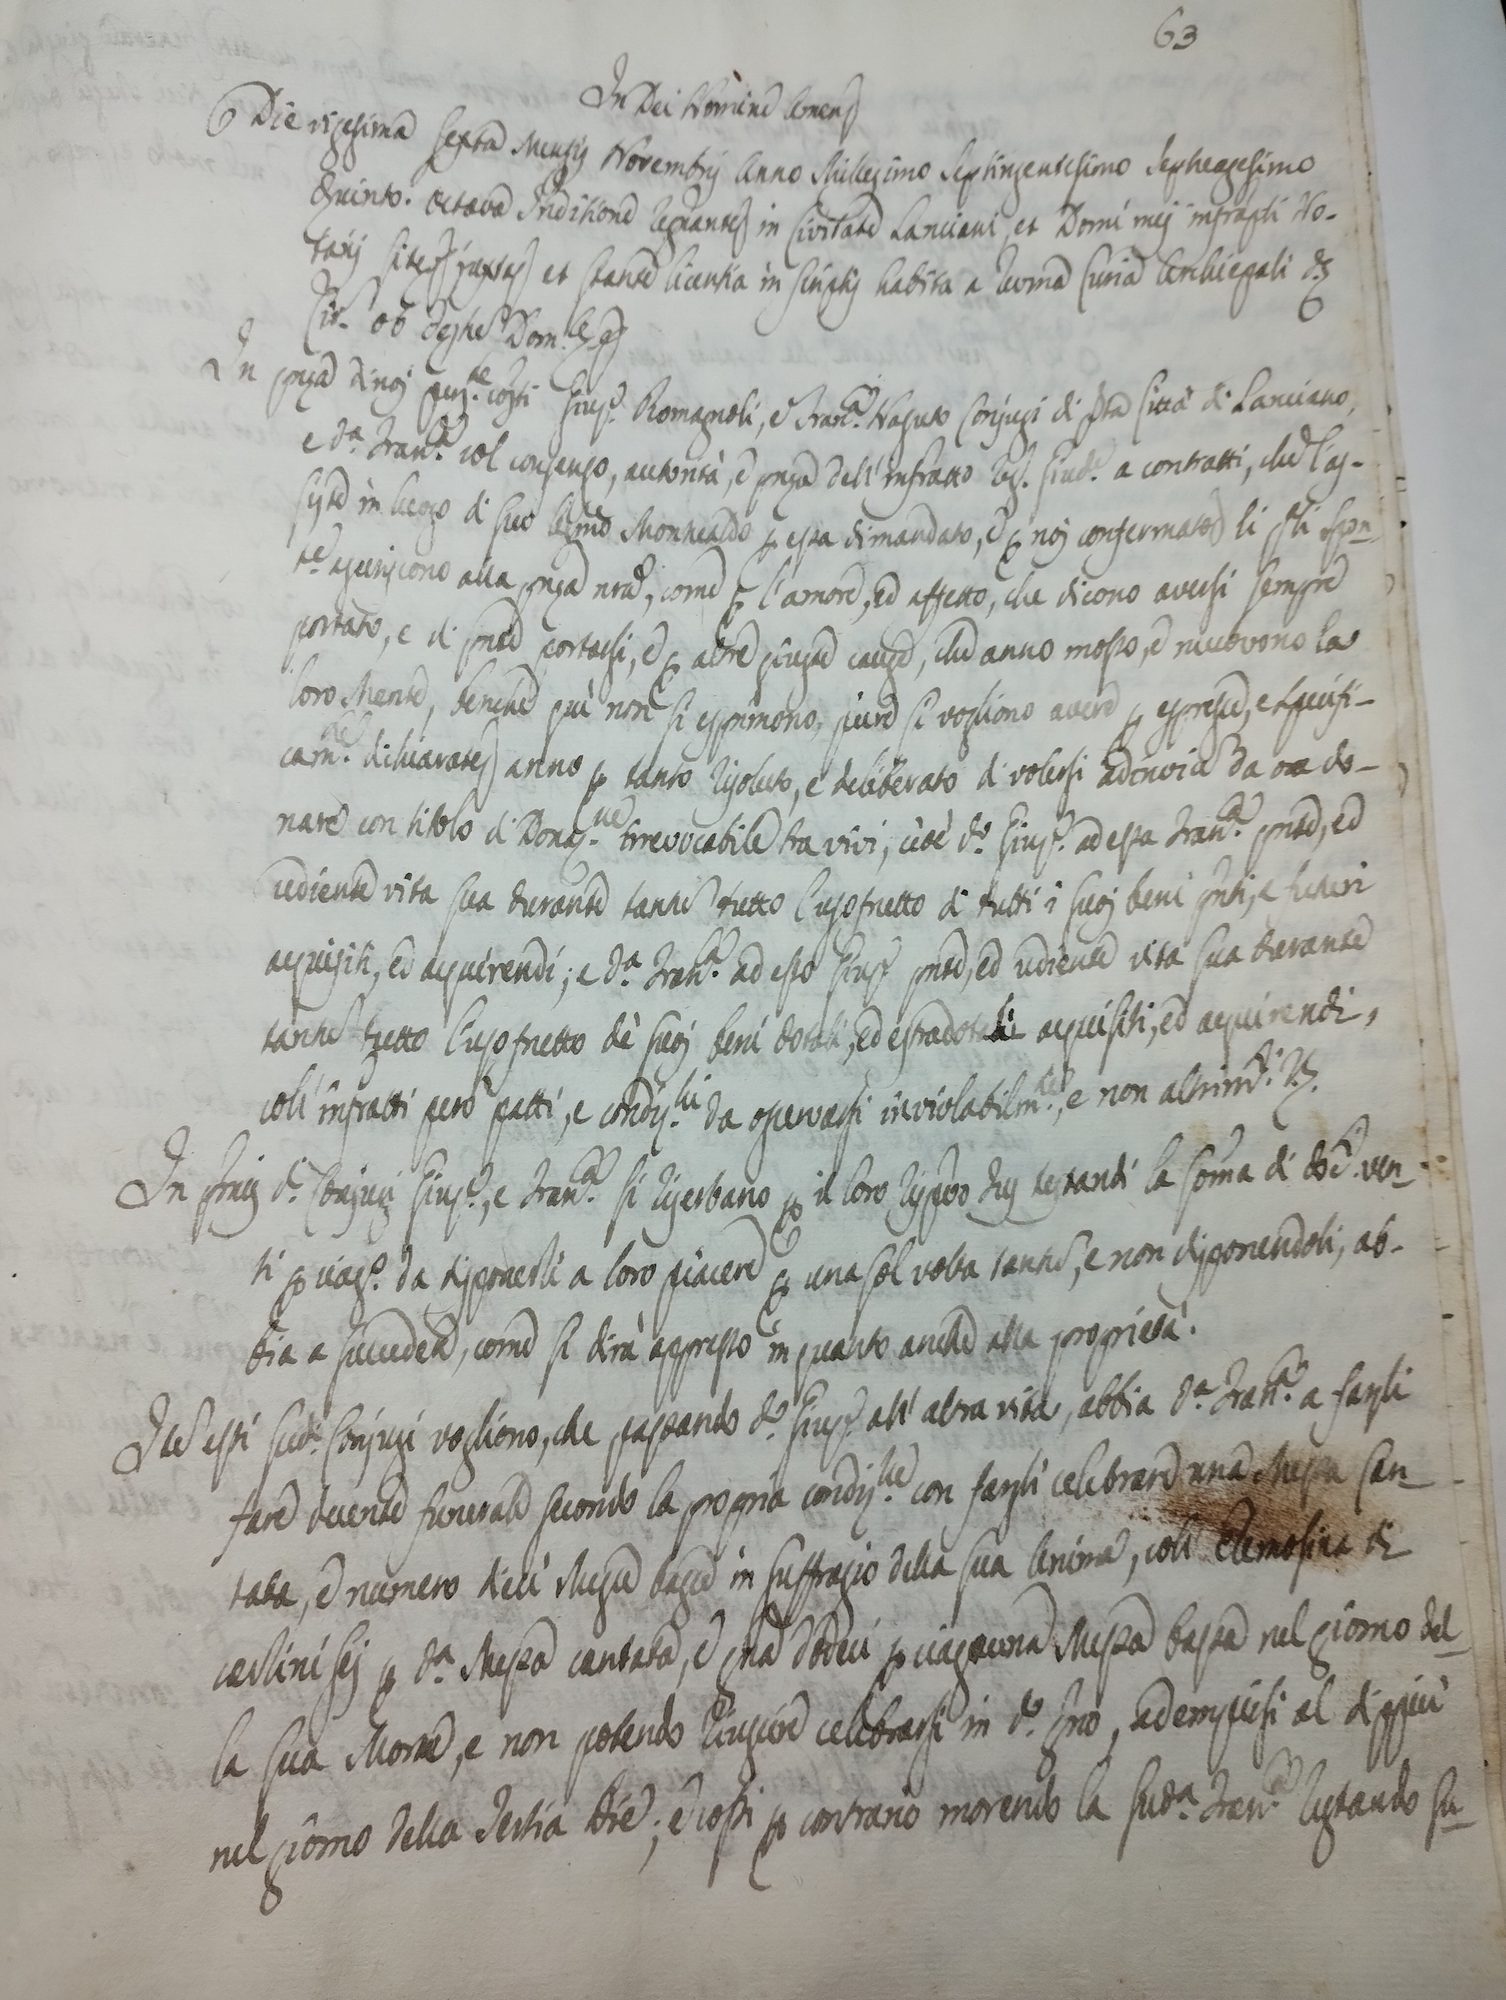 63
In Dei Nomine Amen
Die vigesima sexta Mensis Novembris Anno Millesimo Septingentesimo Septuagesimo
Quinto. octava Inditione regnante in Civitate Lanciani, et Domi mei infraptí No-
tarij sitæ juxta et stante licentia in scriptis habita a Curia Archiepali
ob Dom.
In pnza di noj costi Giuse. Romagnoli, e Franca. Nasuto Conjugi di pta Città di Lanciano,
e da. Franca. col consenso, autorità, e pnza dell'infratto Reg. Giude. a contratti, che l'as-
siste in luogo di suo Mundualdo p essa dimandato, e p noj confermato li pti spon-
te. asseriscono alla pnza nra, come p l'amore, ed affetto, che dicono aversi sempre
portato, e di pnte portarsi, e p altre giuste cause, che anno mosso, e muovono la
loro Mente, benche quì non si esprimono, pure si vogliono avere p espresse, e specifi-
camte. dichiarate anno p tanto risoluto, e deliberato di volersi adinvicem da ora do-
nare con titolo di Donazne. irrevocabile tra vivi, cioè do. Giuse. ad essa Franca. pnte, ed
udiente vita sua durante tantu tutto l'usofrutto di tutti i suoj beni pnti, e futuri
acquisiti, ed acquirendi; e da. Franca. ad esso Giuse. pnte, ed udiente vita sua durante
tantu tutto l'usofrutto de suoj beni dotali, ed estradotali acquisiti, ed acquirendi,
coll'infratti però patti, e condizni. da osservarsi inviolabilmte., e non altrimti.
In pmis di. Conjugi Giuse., e Franca. si riserbano p il loro testandi la soma di doci. ven-
ti p ciasco. da disponerli a loro piacere p una sol volta tantu, e non disponendoli, ab-
bia a succedere, come si dirà appresso in quanto anche alla proprietà.
Ite essi sudi. Conjugi vogliono, che passando do. Giuse. all'altra vita, abbia da. Franca. a fargli
fare decente funerale secondo la propria condizne. con fargli celebrare una Messa can-
tata, e numero dieci Messe basse in suffragio della sua Anima, coll'elemosina di
carlini sej p da. Messa cantata, e gna dodeci p ciascuna Messa bassa nel giorno del-
la sua Morte, e non potendo riuscire celebrarsi in do. gno, adempirsi al dippiù
nel giorno della Terzia die; e così p contrario morendo la suda. Franca. restando su-